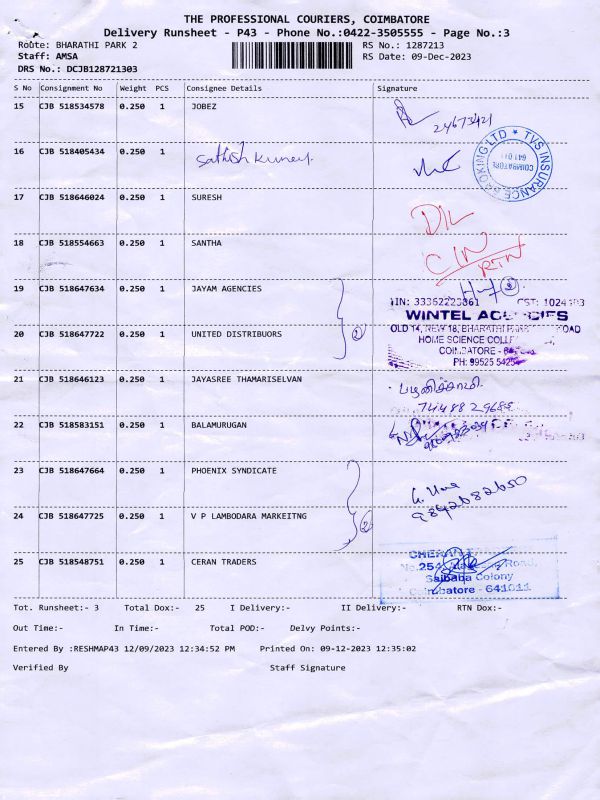 THE PROFESSIONAL COURIERS, COIMBATORE
Delivery Runsheet - P43 - Phone No.:0422-3505555 - Page No.:3
Route: BHARATHI PARK 2 RS No.: 1287213
Staff: AMSA RS Date: 09-Dec-2023
DRS No.: DCJB128721303
S No Consignment No Weight PCS Consignee Details Signature
15 CJB 518534578 0.250 1 JOBEZ
24673421
16 CJB 518405434 0.250 1 Sathish Kumar.
TVS INSURANCE BROKING LTD
COIMBATORE
641 011
17 CJB 518646024 0.250 1 SURESH
DIL
18 CJB 518554663 0.250 1 SANTHA
C/N
RTN
19 CJB 518647634 0.250 1 JAYAM AGENCIES
TIN: 33362223861 CST:
WINTEL AGENCIES
20 CJB 518647722 0.250 1 UNITED DISTRIBUORS
OLD 14, NEW 18, BHARATHI ROAD
HOME SCIENCE
COIMBATORE -
PH: 99525
21 CJB 518646123 0.250 1 JAYASREE THAMARISELVAN
பழனிச்சாமி.
74488 29685
22 CJB 518583151 0.250 1 BALAMURUGAN
23 CJB 518647664 0.250 1 PHOENIX SYNDICATE
9842082650
24 CJB 518647725 0.250 1 V P LAMBODARA MARKEITNG
25 CJB 518548751 0.250 1 CERAN TRADERS
CHERAN
No.254, Road,
Saibaba Colony
Coimbatore - 641011
Tot. Runsheet:- 3 Total Dox:- 25 I Delivery:- II Delivery:- RTN Dox:-
Out Time:- In Time:- Total POD:- Delvy Points:-
Entered By :RESHMAP43 12/09/2023 12:34:52 PM Printed On: 09-12-2023 12:35:02
Verified By Staff Signature